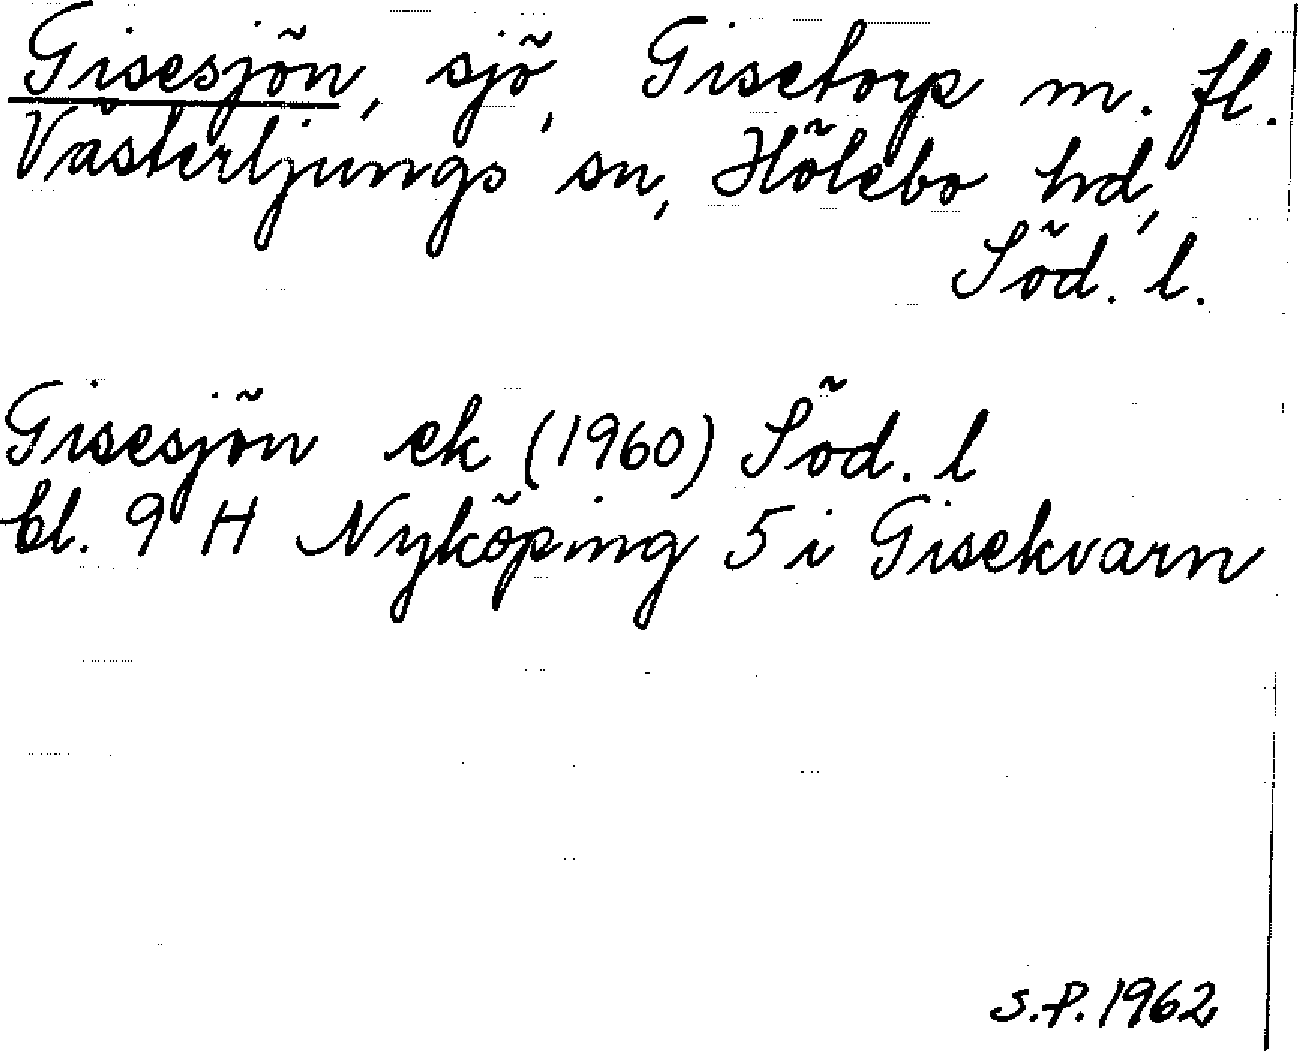 Gisesjön, sjö, Gisetorp m. fl.
Västerljungs sn, Hölebo hd,
Söd. l.
Gisesjön ek (1960) Söd. l
bl. 9 H Nyköping 5 i Gisekvarn
S.P. 1962